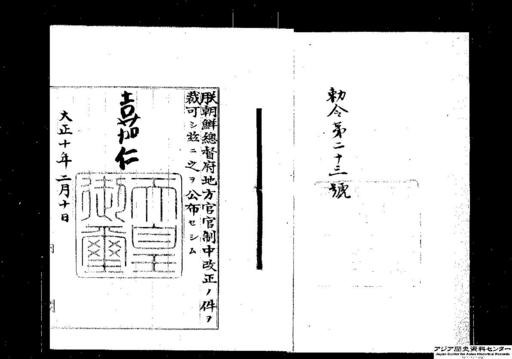 勅令第二十三號
朕朝鮮總督府地方官官制中改正ノ件ヲ
裁可シ茲ニ之ヲ公布セシム
嘉仁
天皇
御璽
大正十年二月十日
アジア歴史資料センター
Japan Center for Asian Historical Records